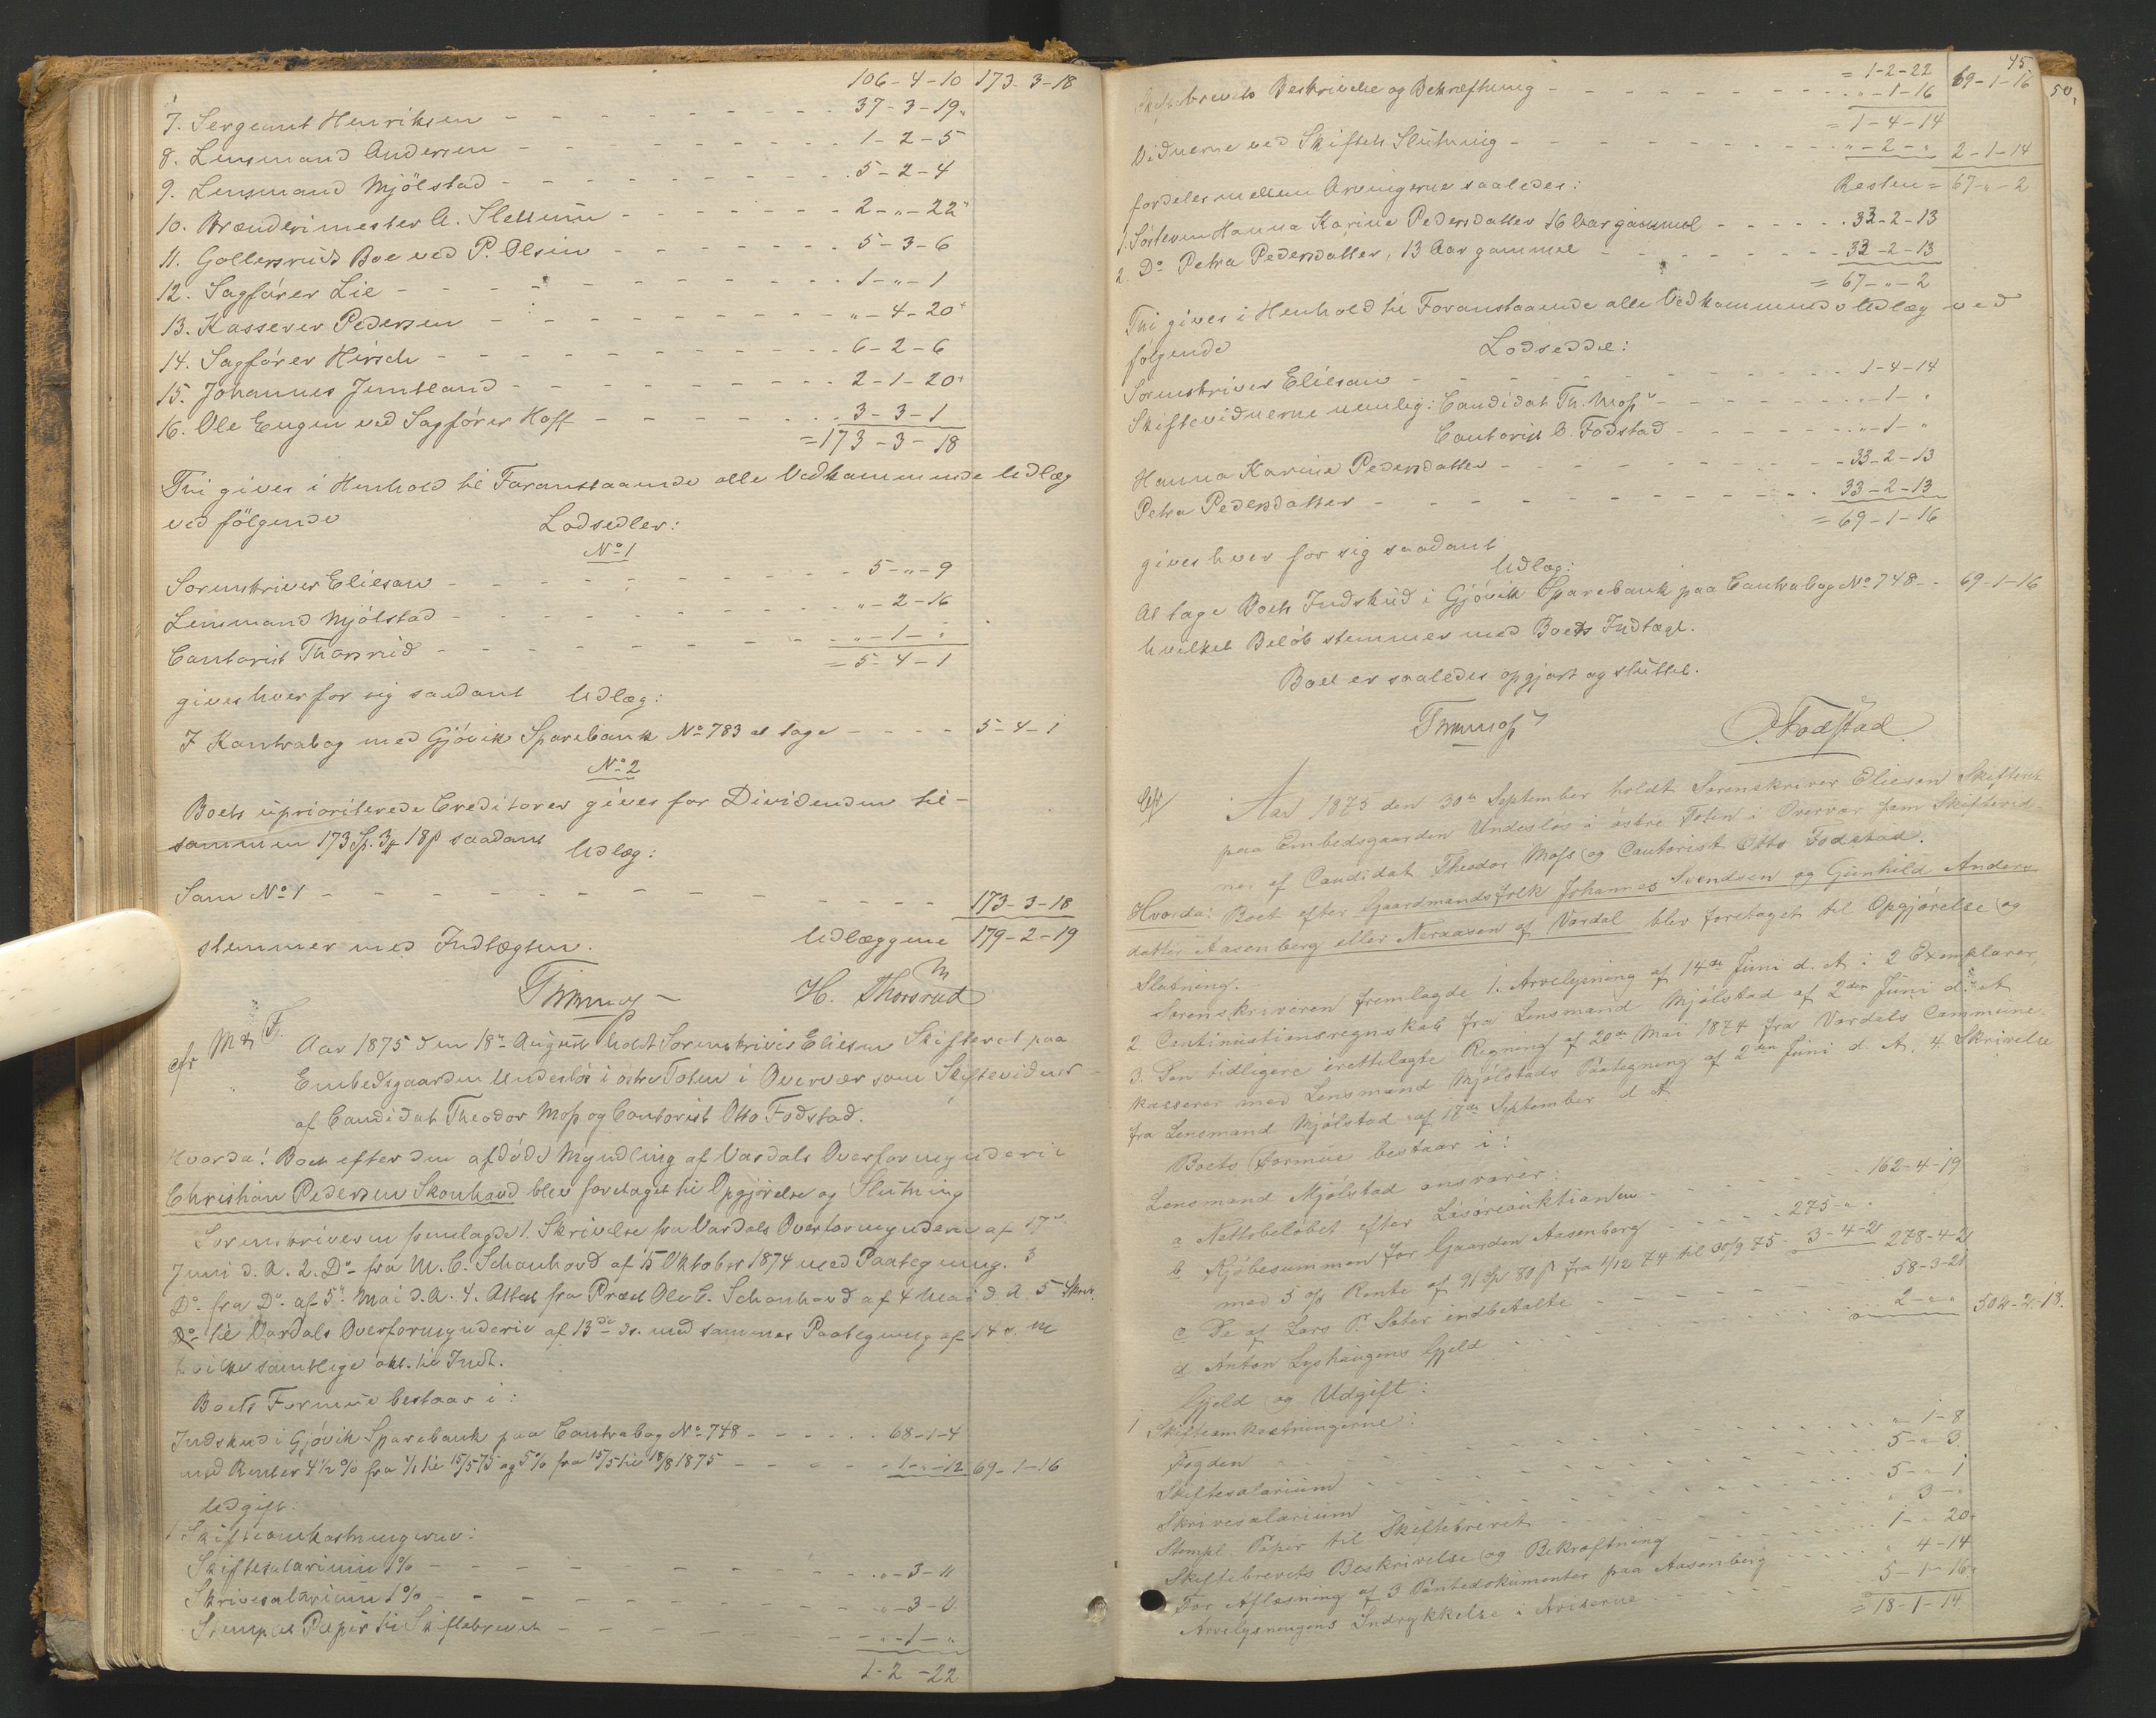 106-4-10 173-3-18
7. Sergeant Henriksen - - - 37-3-19
8. Lensmand Andersen - - - 1-2-5
9. Lensmand Mjölstad - - - 5-2-4
10. Brænderimester A. Slettum - - - 2-"-22
11. Gollersruds Boe ved P. Olsen - - - 5-3-6
12. Sagförer Lie - - - 1-"-1
13. Kasserer Pedersen - - - "-4-20
14. Sagförer Hirsch - - - 6-2-6
15. Johannes Jemtland - - - 2-1-20
16. Ole Engen ved Sagförer Hoff - - - 3-3-1
=173-3-18
Thi gives i Henhold til Foranstaaende alle Vedkommende Udlæg
ved fölgende Lodsedler:
No 1
Sorenskriver Eliesen - - - 5-"-9
Lensmand Mjölstad - - - "-2-16
Contorist Thorsrud - - - "-1-"
=5-4-1
gives hver for sig saadant Udlæg:
I Kontrabog med Gjövik Sparebank No 783 at tage - - - 5-4-1
No 2
Boets uprioriterede Creditorer gives for Dividenden til-
sammen 173 Sp. 3 18 saadant Udlæg:
Som No 1 - - - 173-3-18
stemmer med Indtægten. Udlæggene 179-2-19
H. Thorsrud
M & F.
Aar 1875 den 18de August holdt Sorenskriver Eliesen Skifteret paa
Embedsgaarden Undeslös i östre Toten i Overvær som Skiftevidner
af Candidat Theodor Moss og Contorist Otto Fodstad.
Hvorda! Boet efter den afdöde Myndling af Vardals Overformynderi
Christian Pedersen Skonhovd blev foretaget til Opgjörelse og Slutning
Sorenskriveren fremlagde 1. Skrivelse fra Vardals Overformynderi af 17de
Juni d.A. 2. Do fra M. C. Schonhovd af 15 Oktober 1874 med Paategning. 3
Do fra Do af 5te Mai d.A. 4. Attest fra Præst Ole C. Schonhovd af 4 Mai d A 5 Skriv.
Do til Vardals Overformynderi af 13de ds. med sammes Paategning af 14 s. M
hvilke samtlige akt. til Indt.
Boets Formue bestaar i:
Indskud i Gjövik Sparebank paa Contrabog No 748 - - - 68-1-4
med Renter 4½ % fra 1/1 til 15/5 75 og 5% fra 15/5 til 18/8 1875 - - - 1-"-12 69-1-16
Udgift:
1 Skifteomkostningerne:
Skiftesalarium 1% - - - "-3-11
Skriversalarium 1% - - -
Stemplet Papir til Skiftebrevet - - - "-1-"
1-2-22
45
50.
=1-2-22 69-1-16
Skiftebrevets Beskrivelse og Bekræftning - - - "-1-16
=1-4-14
Vidnerne ved Skiftets Slutning - - - "-2-" 2-1-14
Resten = 67-"-2
fordeles mellem Arvingerne saaledes:
1. Söstren Hanna Karine Pedersdatter 16 Aar gammel - - - 33-2-13
2 Do Petra Pedersdatter, 13 Aar gammel - - - 33-2-13
=67-"-2
Thi gives i Henhold til Foranstaaende alle Vedkommende Udlæg ved
fölgende Lodseddel:
Sorenskriver Eliesen - - - 1-4-14
Skiftevidnerne nemlig: Candidat Th. Moss - - - "-1-"
Contorist O. Fodstad - - - "-1-"
Hanna Karine Pedersdatter - - - 33-2-13
Petra Pedersdatter - - - 33-2-13
=69-1-16
gives hver for sig saadant
Udlæg:
At tage Boets Indskud i Gjövik Sparebank paa Contrabog No 748 - - 69-1-16
hvilket Belöb stemmer med Boets Indtægt.
Boet er saaledes opgjort og sluttet.
O. Fodstad.
Aar 1875 den 30te September holdt Sorenskriver Eliesen Skifteret
paa Embedsgaarden Undeslös i östre Toten i Overvær som Skiftevid-
ner af Candidat Theodor Moss og Contorist Otto Fodstad.
Hvorda! Boet efter Gaardmandsfolk Johannes Svendsen og Gunhild Anders-
datter Aasenberg eller Neraasen af Vardal blev foretaget til Opgjörelse og
Slutning.
Sorenskriveren fremlagde 1. Arvelysning af 14de Juni d. A i 2 Exemplarer,
2 Continuationsregnskab fra Lensmand Mjölstad af 2den Juni d. A
3. Den tidligere irettelagte Regning af 20de Mai 1874 fra Vardals Commune-
kasserer med Lensmand Mjölstads Paategning af 2den Juni d. A. 4. Skrivelse
fra Lensmand Mjölstad af 17de September d A
Boets Formue bestaar i:
Lensmand Mjölstad ansvarer:
a Nettobelöbet efter Lösöreauktionen - - - 162-4-19
b Kjöbesummen for Gaarden Aasenberg - - - 275-"-"
med 5 % Rente af 91 Sp 80 s fra 1/12 74 til 30/9 75 - 3-4-2 278-4-2
c De af Lars P. Sater indbetalte - - - 58-3-21
d Anton Lyshaugens Gjeld - - - 2-"-" 502-2-18.
Gjeld og Udgift:
1 Skifteomkostningerne:
Fogden - - - "-1-8
Skiftesalarium - - - 5-"-3
Skriversalarium - - - 5-"-1
Stempl. Papir til Skiftebrevet - - - "3-"
Skiftebrevets Beskrivelse og Bekræftning - - - 1-"-20
For Aflæsning af 3 Pantedokumenter paa Aasenberg - - - "4-14
Arvelysningens Indrykkelse i Aviserne - - - 5-1-16
=18-1-14